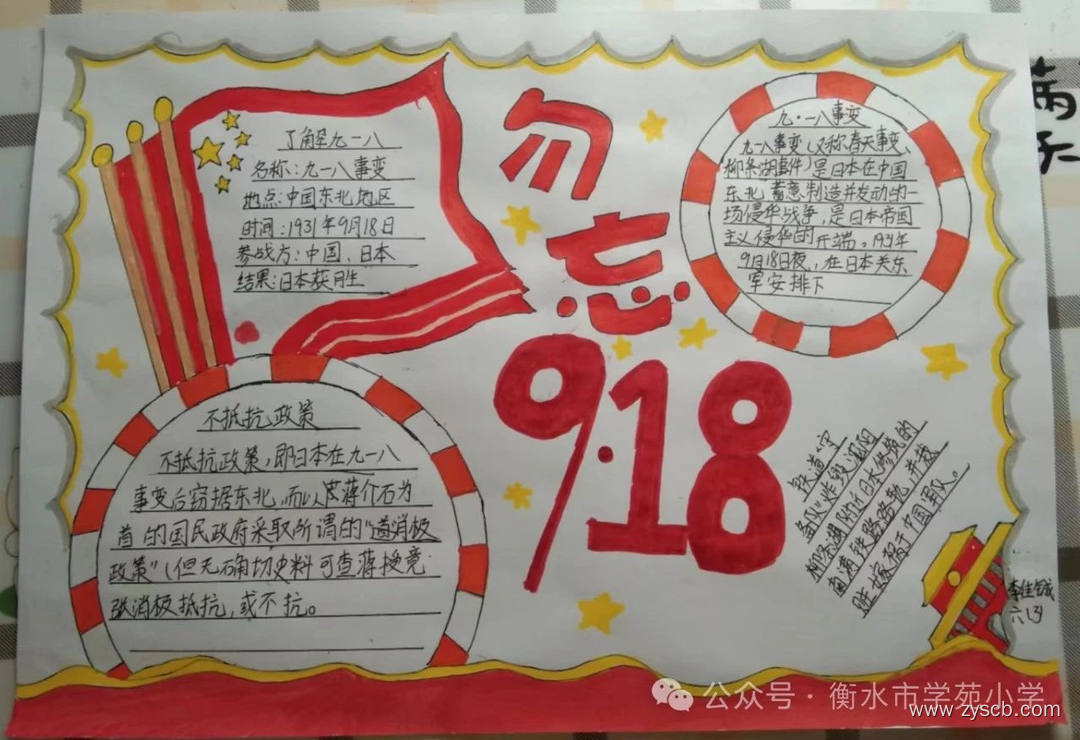 了解九一八
名称:九一八事变
地点:中国东北地区
时间:1931年9月18日
参战方:中国、日本
结果:日本获胜
勿
忘
9·18
九·一八事变
九一八事变(又称奉天事变、
柳条湖事件)是日本在中国
东北蓄意制造并发动的一
场侵华战争,是日本帝国
主义侵华的开端。1931年
9月18日夜,在日本关东
军安排下
铁道"守
备队"炸毁沈阳
柳条湖附近日本修筑的
南满铁路路轨,并栽
赃嫁祸于中国军队。
不抵抗政策
不抵抗政策,即日本在九一八
事变后窃据东北,而以蒋介石为
首的国民政府采取所谓的"消极
政策"(但无确切史料可查蒋授意
张消极抵抗,或不抗。
六(3)
公众号·衡水市学苑小学
www.zyscb.com